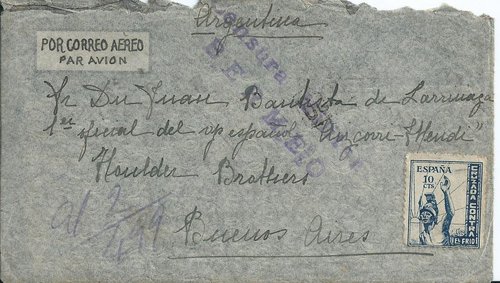 Argentina
POR CORREO AEREO
PAR AVION
Censura
BERMEO
Sr Don Juan Bautista de Larrinaga
1er oficial del vp español "Aizcorri-Mendi"
Houlder Brothers
Buenos Aires
al 2/4 
ESPAÑA
10
CTS
CRUZADA CONTRA
EL FRIO